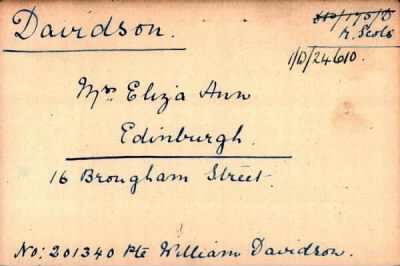 Davidson.
/175/D
R. Scots
1/D/24610.
Mrs Eliza Ann
Edinburgh.
16 Brougham Street.
No: 201340 Pte William Davidson.